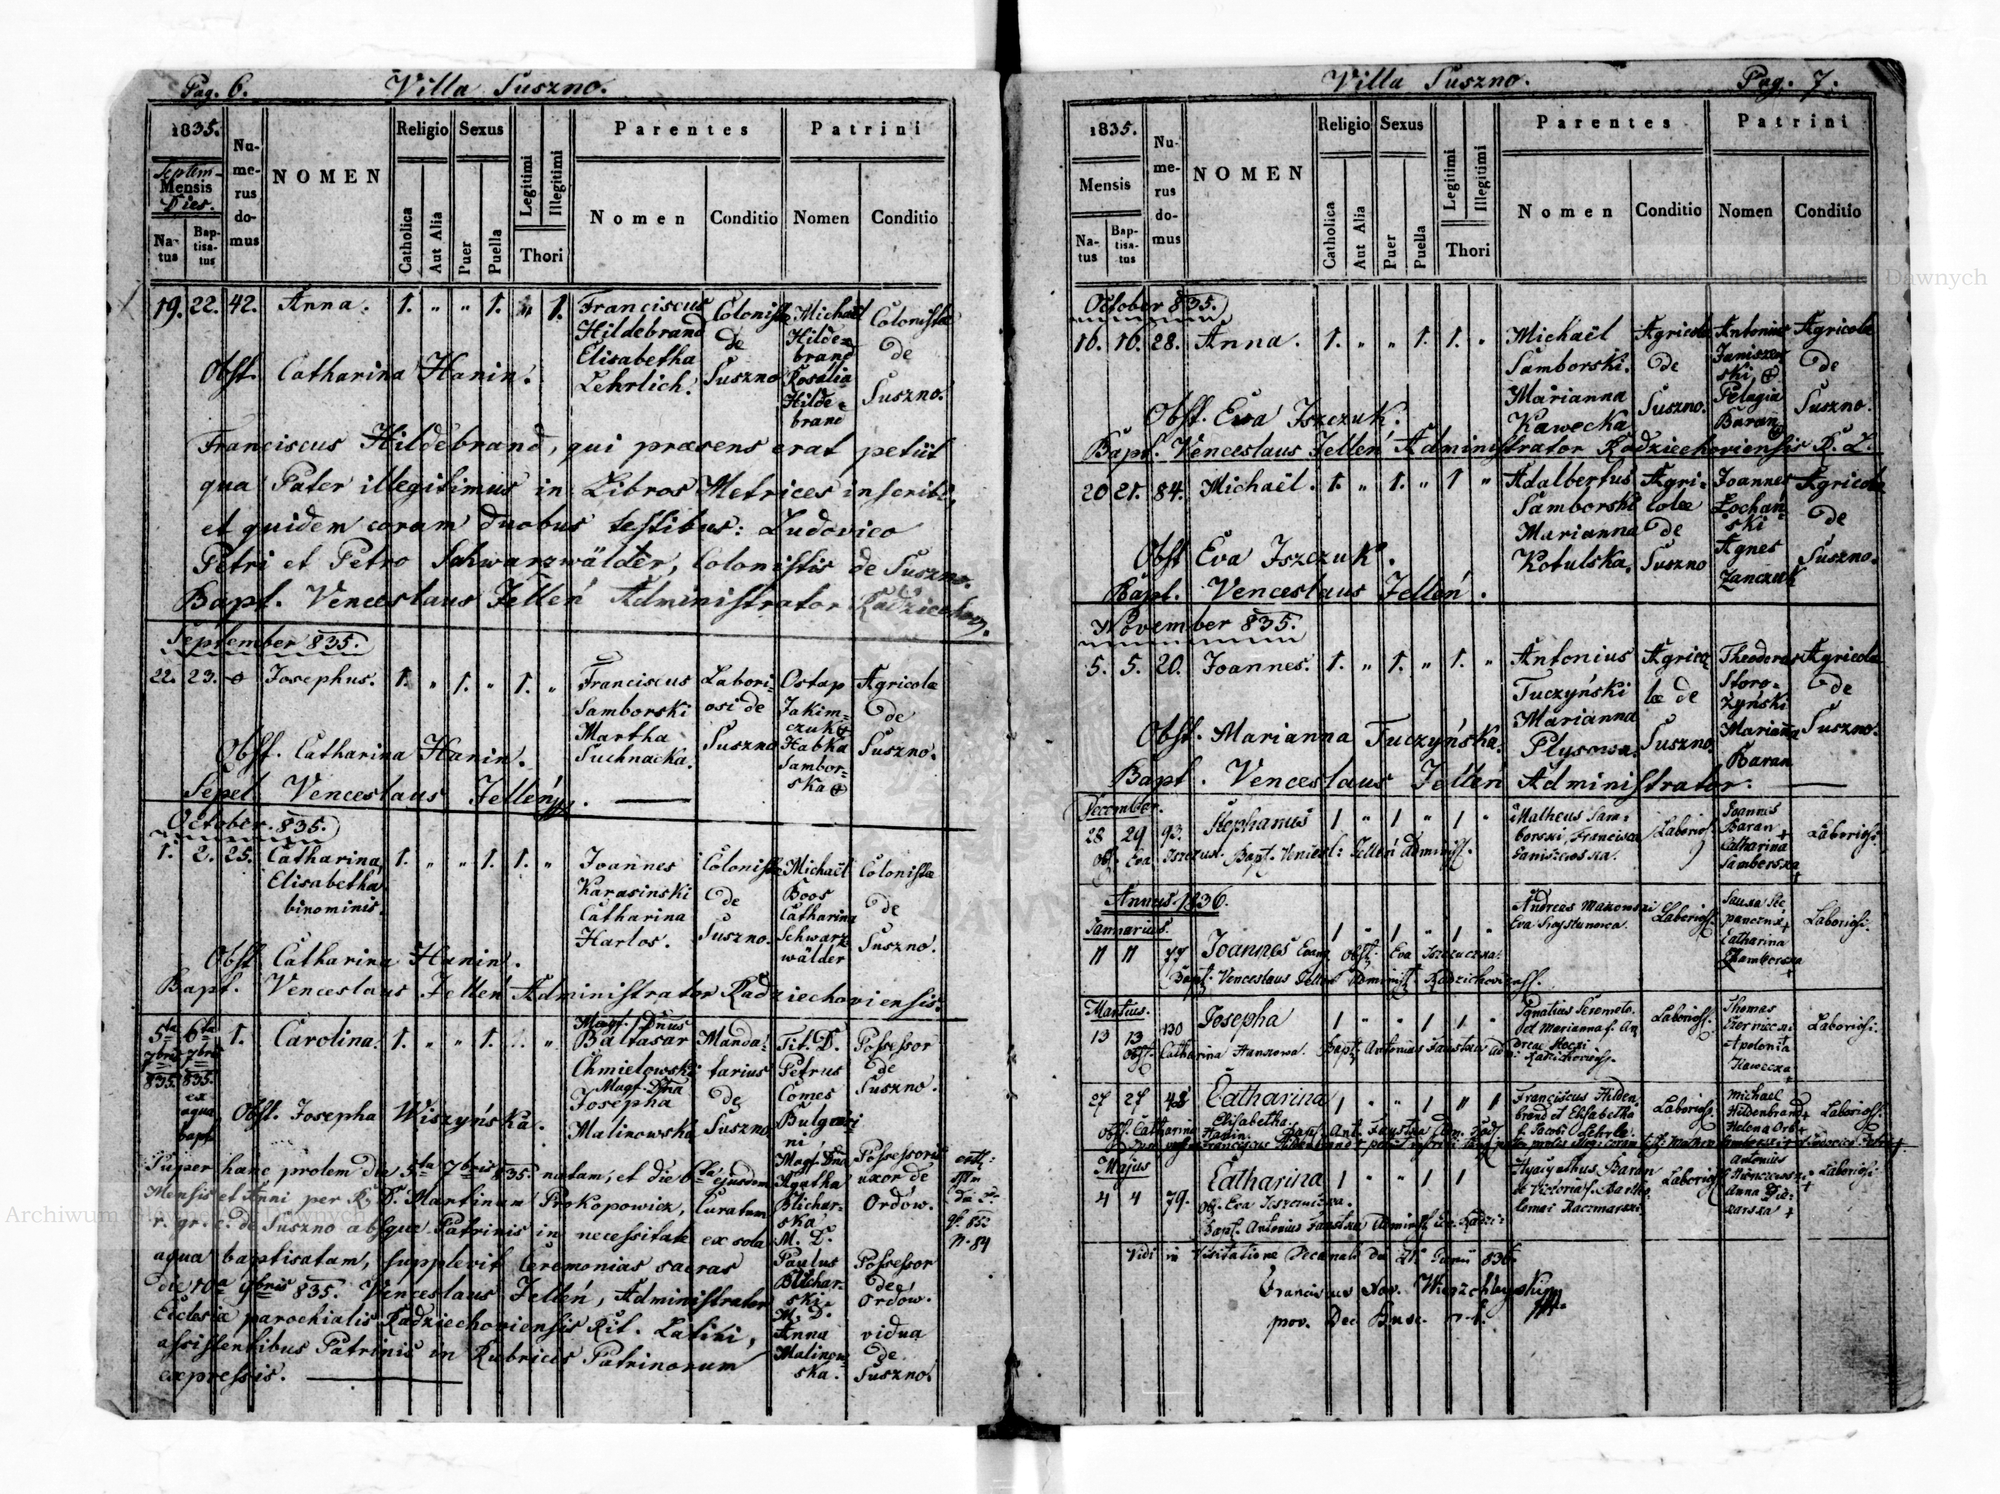 Pag. 6. Villa Suszno.
1835.
Septem-
Mensis
Dies.
Na-
tus
Bap-
tisa-
tus
Nu-
me-
rus
do-
mus
NOMEN
Religio
Catholica
Aut Alia
Sexus
Puer
Puella
Legitimi
Illegitimi
Thori
Parentes
Nomen
Conditio
Patrini
Nomen
Conditio
19. 22. 42. Anna. 1. „ „ 1. „ 1.
Franciscus
Hildebrand
Elisabetha
Lehrlich.
Colonistæ
de
Suszno
Michaël
Hilde-
brand
Rosalia
Hilde-
brand
Colonistæ
de
Suszno.
Obst. Catharina Hanin.
Franciscus Hildebrand, qui præsens erat petiit
qua Pater illegitimus in Libros Metrices inscribi,
et quidem coram duobus testibus: Ludovico
Petri et Petro Schwarzwälder, Colonistis de Suszno.
Bapt. Venceslaus Jelleń Administrator
September 835.
22. 23. Josephus. 1. „ 1. „ 1. „
Franciscus
Samborski
Martha
Suchnacka.
Labori-
osi de
Suszno
Ostap
Jakim-
czuk
Habka
Sambor-
ska
Agricolæ
de
Suszno.
Obst. Catharina Hanin.
Sepel. Venceslaus Jelleń
October 835.
1. 2. 25. Catharina 1. „ „ 1. 1. „
Elisabetha
binominis.
Joannes
Karasinski
Catharina
Harlos.
Colonistæ
de
Suszno.
Michaël
Boos
Catharina
Schwarz-
wälder
Colonistæ
de
Suszno.
Obst. Catharina Hanin.
Bapt. Venceslaus Jelleń Administrator Radziechoviensis.
5ta 7bris 835.
6ta 7bris 835. ex aqua bapt.
1. Carolina. 1. „ „ 1. 1. „
Magf. Dnus
Baltasar
Chmielowski
Magf. Dna
Josepha
Malinowska
Manda-
tarius
de
Suszno
Tit. D.
Petrus
Comes
Possessor
de
Suszno.
Obst. Josepha Wiszyńska.
Magf. Dna
Agatha
Blichar-
ska
M. D.
Paulus
Blichar-
ski.
M. D.
Anna
Malinow-
ska.
Possessoris
uxor de
Ordow.
Possessor
de
Ordów.
vidua
de
Suszno.
Super hanc prolem die 5ta 7bris 835. natam, et die 6ta ejusdem
Mensis et Anni per R. D. Martinum Prokopowicz, Curatum
r. gr. c. de Suszno absque Patrinis in necessitate ex sola
aqua baptisatam, supplevit Ceremonias sacras
die 10a 9bris 835. Venceslaus Jelleń, Administrator
Ecclesiæ parochialis Radziechoviensis Rit. Latini,
assistentibus Patrinis in Rubrices Patrinorum
expressis.
Villa Suszno. Pag. 7.
1835.
Mensis
Na-
tus
Bap-
tisa-
tus
Nu-
me-
rus
do-
mus
NOMEN
Religio
Catholica
Aut Alia
Sexus
Puer
Puella
Legitimi
Illegitimi
Thori
Parentes
Nomen
Conditio
Patrini
Nomen
Conditio
October 835.
10. 10. 28. Anna. 1. „ „ 1. 1. „
Michaël
Samborski.
Marianna
Kawecka
Agricolæ
de
Suszno.
Antonius
Janiszew-
ski
Pelagia
Baran
Agricolæ
de
Suszno.
Obst. Eva Iszczuk.
Bapt. Venceslaus Jelleń Administrator Radziechoviensis R. L.
20 21. 84. Michaël. 1. „ 1. „ 1 „
Adalbertus
Samborski
Marianna
Kotulska.
Agri-
colæ
de
Suszno
Joannes
Łochań-
ski
Agnes
Zanczuk
Agricolæ
de
Suszno.
Obst Eva Iszczuk.
Bapt. Venceslaus Jelleń.
November 835.
5. 5. 20. Joannes. 1. „ 1. „ 1. „
Antonius
Tuczyński
Marianna
Plysowa.
Agrico-
læ de
Suszno.
Theodorus
Storo-
żyński
Marianna
Baran
Agricolæ
de
Suszno.
Obst. Marianna Tuczyńska.
Bapt. Venceslaus Jelleń Administrator.
December.
28 29 93. Stephanus 1 „ 1 „ 1 „
Matheus Sam-
borski, Francisca
Janiszewska.
Laboriosi.
Joannes
Baran +
Catharina
Samborska +
Laboriosi.
Obst. Eva Iszczuk. Bapt. Vencesl: Jelleń Administ.
Annus 1836.
Januarius.
11 11 77 Joannes
Andreas
Eva
Laboriosi.
Catharina
Laboriosi.
Obst. Eva
Bapt. Venceslaus Jelleń Administ.
Martius.
13 13 130 Josepha 1 „ „ 1 1 „
Ignatius
et Marianna
Laboriosi.
Thomas
Apolonia
Kawecka +
Laboriosi.
Obst. Catharina Bapt. Antonius Faustka
27 27 48 Catharina 1 „ „ 1 „ 1
Elisabetha.
Franciscus Hilden-
brand et Elisabetha
f. Jacobi Lehrle.
Laboriosi.
Michael
Hildenbrand +
Helena
Laboriosi.
Obst. Catharina Hanin. Bapt. Ant. Faustka
Majus
4 4 79. Catharina 1 „ „ 1 1 „
Hyacynthus Baran
et Victoria
Kaczmarski
Laboriosi
Antonius
Anna
Laboriosi.
Obst. Eva
Bapt. Antonius Faustka
Vidi in Visitatione Decanali 836.
Franciscus Xav. Wierzchleyski
prov. Dec Busc.
Archiwum Główne Akt Dawnych
Archiwum Główne Akt Dawnych